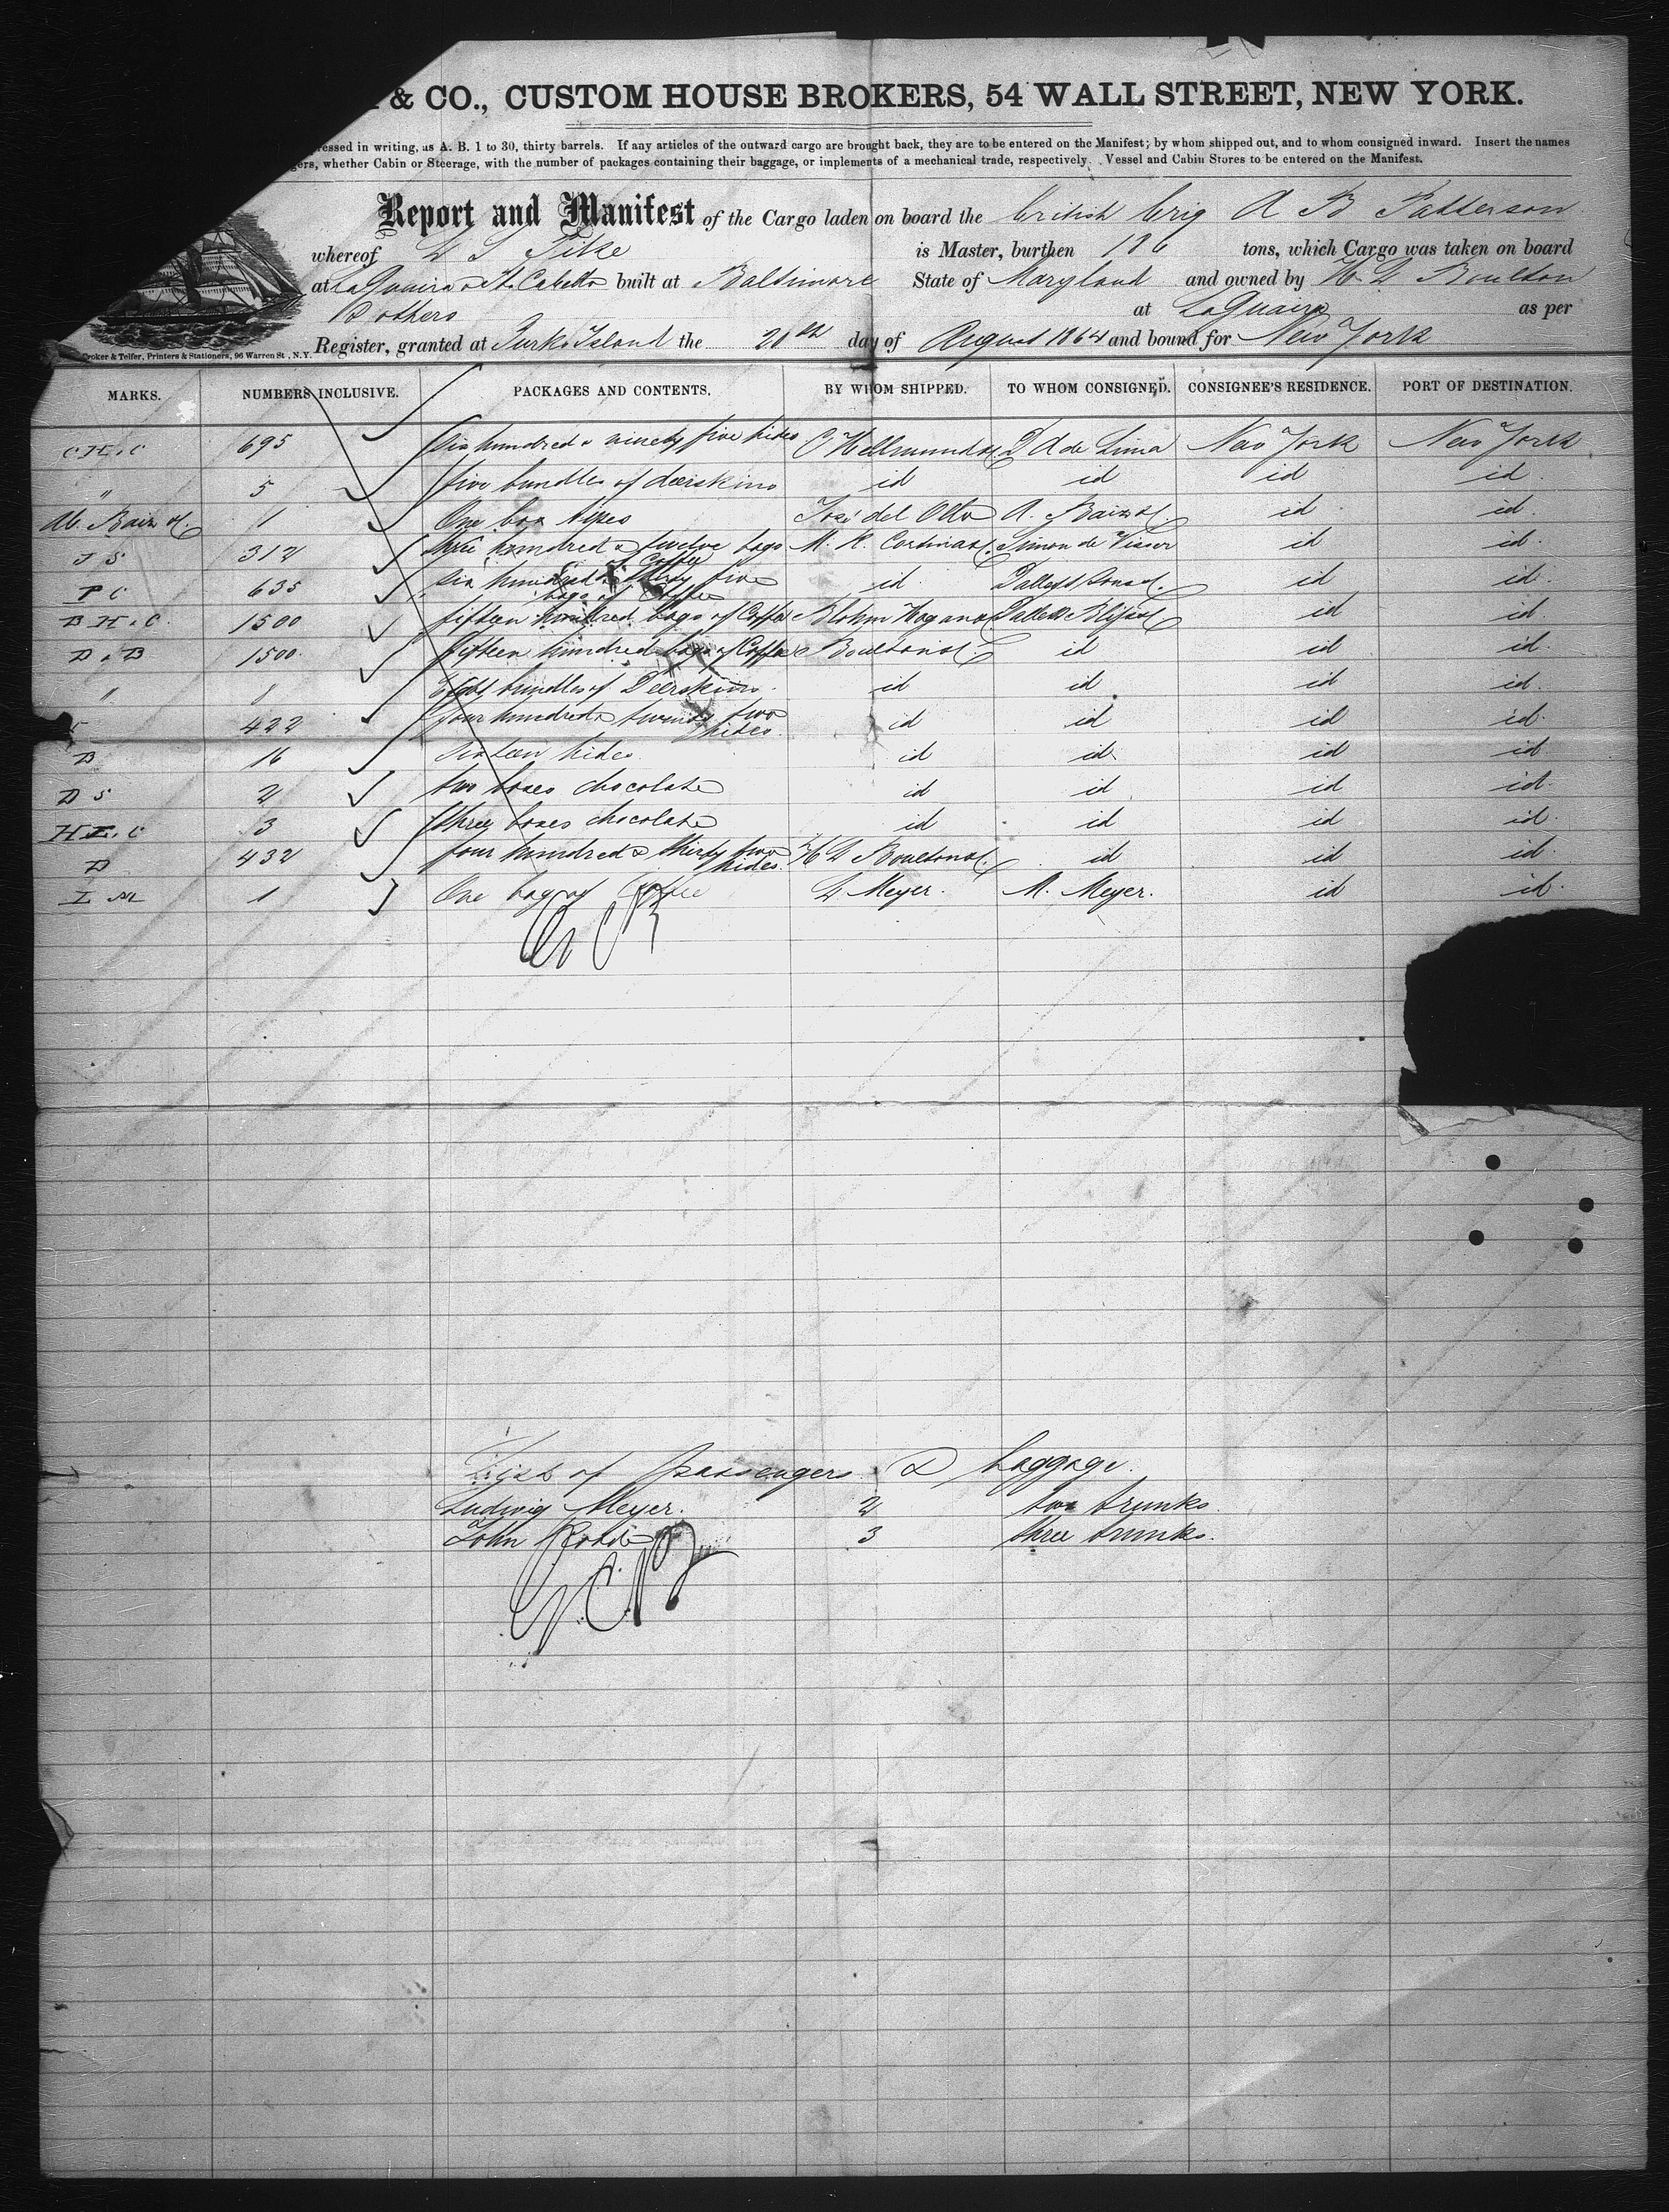 & CO., CUSTOM HOUSE BROKERS, 54 WALL STREET, NEW YORK.
in writing, as A. B. 1 to 30, thirty barrels. If any articles of the outward cargo are brought back, they are to be entered on the Manifest; by whom shipped out, and to whom consigned inward. Insert the names
whether Cabin or Steerage, with the number of packages containing their baggage, or implements of a mechanical trade, respectively. Vessel and Cabin Stores to be entered on the Manifest.
Report and Manifest of the Cargo laden on board the british brig A B Patterson
whereof L S Pike is Master, burthen 186 tons, which Cargo was taken on board
at LaGuaira & Pt. Cabello built at Baltimore State of Maryland and owned by H. L Boulton
& others at LaGuaira as per
Croker & Telfer, Printers & Stationers, 96 Warren St., N.Y. Register, granted at Turks Island the 20th day of August 1864 and bound for New York
MARKS. NUMBERS INCLUSIVE. PACKAGES AND CONTENTS. BY WHOM SHIPPED. TO WHOM CONSIGNED. CONSIGNEE'S RESIDENCE. PORT OF DESTINATION.
C H & C 695 Six hundred & ninety five hides D A de Lima New York New York
" 5 five bundles of deerskins id id id id.
1 One box A. Baiz id id.
J S 312 three hundred & twelve bags of Coffee Simon de Visser id id.
P C 635 six hundred & thirty five bags of Coffee id id id.
B H & C. 1500 fifteen hundred bags of Coffee Blohm id id.
D & B 1500. fifteen hundred bags of Coffee Boulton id id id.
" 8 Eight bundles of Deerskins. id id. id id.
422 four hundred & twenty two hides id id id id.
B 16 Sixteen hides id id. id id
D S 2 two boxes chocolate id id. id id.
3 three boxes chocolate id id id id.
D 432 four hundred & thirty two hides. H L Boulton id id id.
L M 1 One bag of Coffee L Meyer. M. Meyer. id id.
List of passengers & baggage.
Ludwig Meyer. 2 two trunks.
John 3 three trunks.